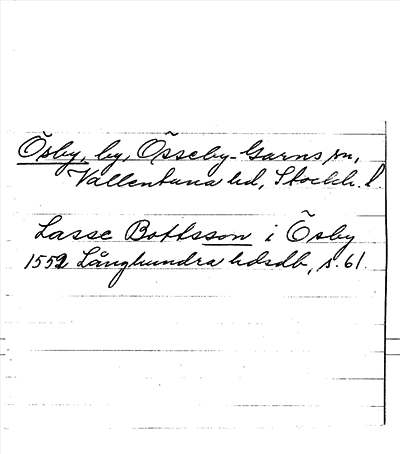 Õsby, by, Össeby-Garns sn,
Vallentuna hd, Stockh. l
Lasse Bottsson i Õsby
1552 Långhundra hdsdb, s. 61.